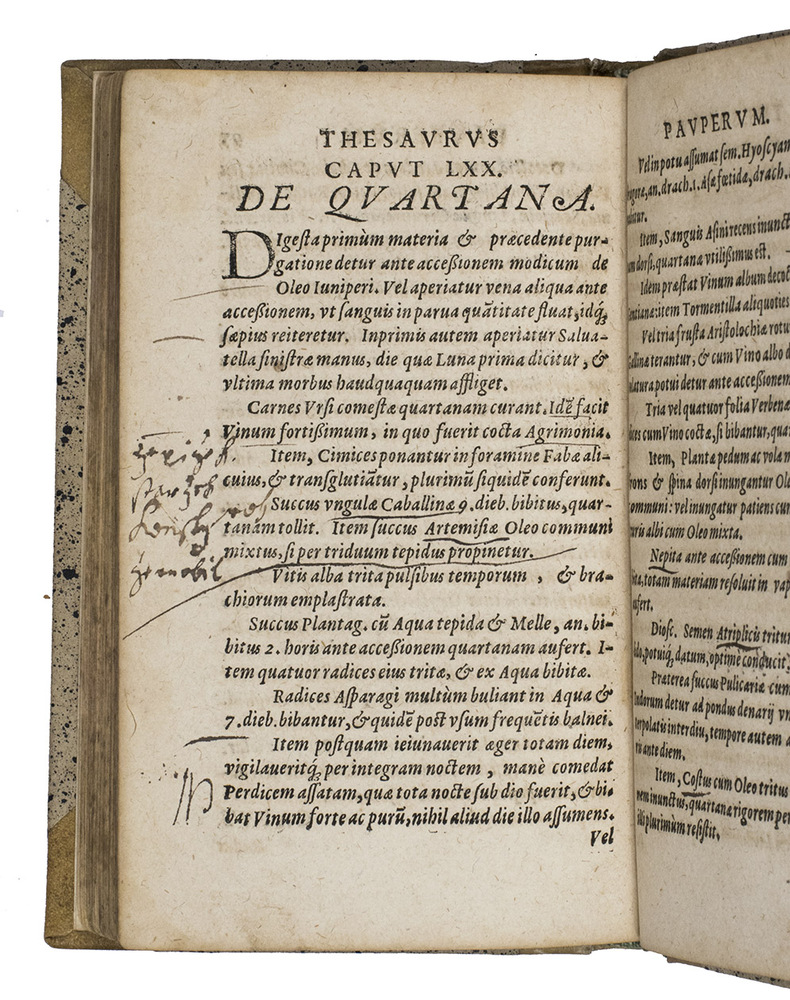 THESAVRVS
CAPVT LXX.
DE QVARTANA.
DIgeſta primùm materia & præcedente pur-
gatione detur ante acceſsionem modicum de
Oleo Iuniperi. Vel aperiatur vena aliqua ante
acceſsionem, vt ſanguis in parua quãtitate fluat, idq́;
ſæpius reiteretur. Inprimis autem aperiatur Salua-
tella ſiniſtræ manus, die quæ Luna prima dicitur, &
vltima morbus haudquaquam affliget.
Carnes Vrſi comeſtæ quartanam curant. Idẽ facit
Vinum fortiſsimum, in quo fuerit cocta Agrimonia.
Item, Cimices ponantur in foramine Fabæ ali-
cuius, & tranſglutiãtur, plurimũ ſiquidẽ conferunt.
Succus vngulæ Caballinæ 9. dieb. bibitus, quar-
tanam tollit. Item ſuccus Artemiſiæ Oleo communi
mixtus, ſi per triduum tepidus propinetur.
Vitis alba trita pulſibus temporum, & bra-
chiorum emplaſtrata.
Succus Plantag. cũ Aqua tepida & Melle, an. bi-
bitus 2. horis ante acceſsionem quartanam aufert. I-
tem quatuor radices eius tritæ, & ex Aqua bibitæ.
Radices Aſparagi multùm buliant in Aqua &
7. dieb. bibantur, & quidẽ poſt vſum frequẽtis balnei.
Item poſtquam ieiunauerit æger totam diem,
vigilaueritq́; per integram noctem, manè comedat
Perdicem aſſatam, quæ tota nocte ſub dio fuerit, & bi-
bat Vinum forte ac purũ, nihil aliud die illo aſſumens.
Vel
PAVPERVM.
Vel in potu aſſumat ſem. Hyoſcyam
an. drach. 1. Aſæ fœtidæ, drach.
Item, Sanguis Aſini recens inunct
dorſi, quartanæ vtiliſsimus eſt.
Idem præſtat Vinum album decoct
item Tormentilla aliquoties
Vel tria fruſta Ariſtolochiæ rotu
terantur, & cum Vino albo d
potui detur ante acceſsionem
Tria vel quatuor folia Verbenæ
cum Vino coctæ, ſi bibantur, qua
Item, Plantæ pedum ac volæ m
& ſpina dorſi inungantur Ol
communi: vel inungatur patiens cum
albi cum Oleo mixta.
Nepita ante acceſsionem cum
totam materiam reſoluit in vap
Dioſc. Semen Atriplicis tritum
potuiq́; datum, optimè conducit.
Præterea ſuccus Pulicariæ cum
detur ad pondus denarij vn
interdiu, tempore autem a
ante diem.
Item, Coſtus cum Oleo tritus
inunctus, quartanæ rigorem per
plurimùm reſiſtit.